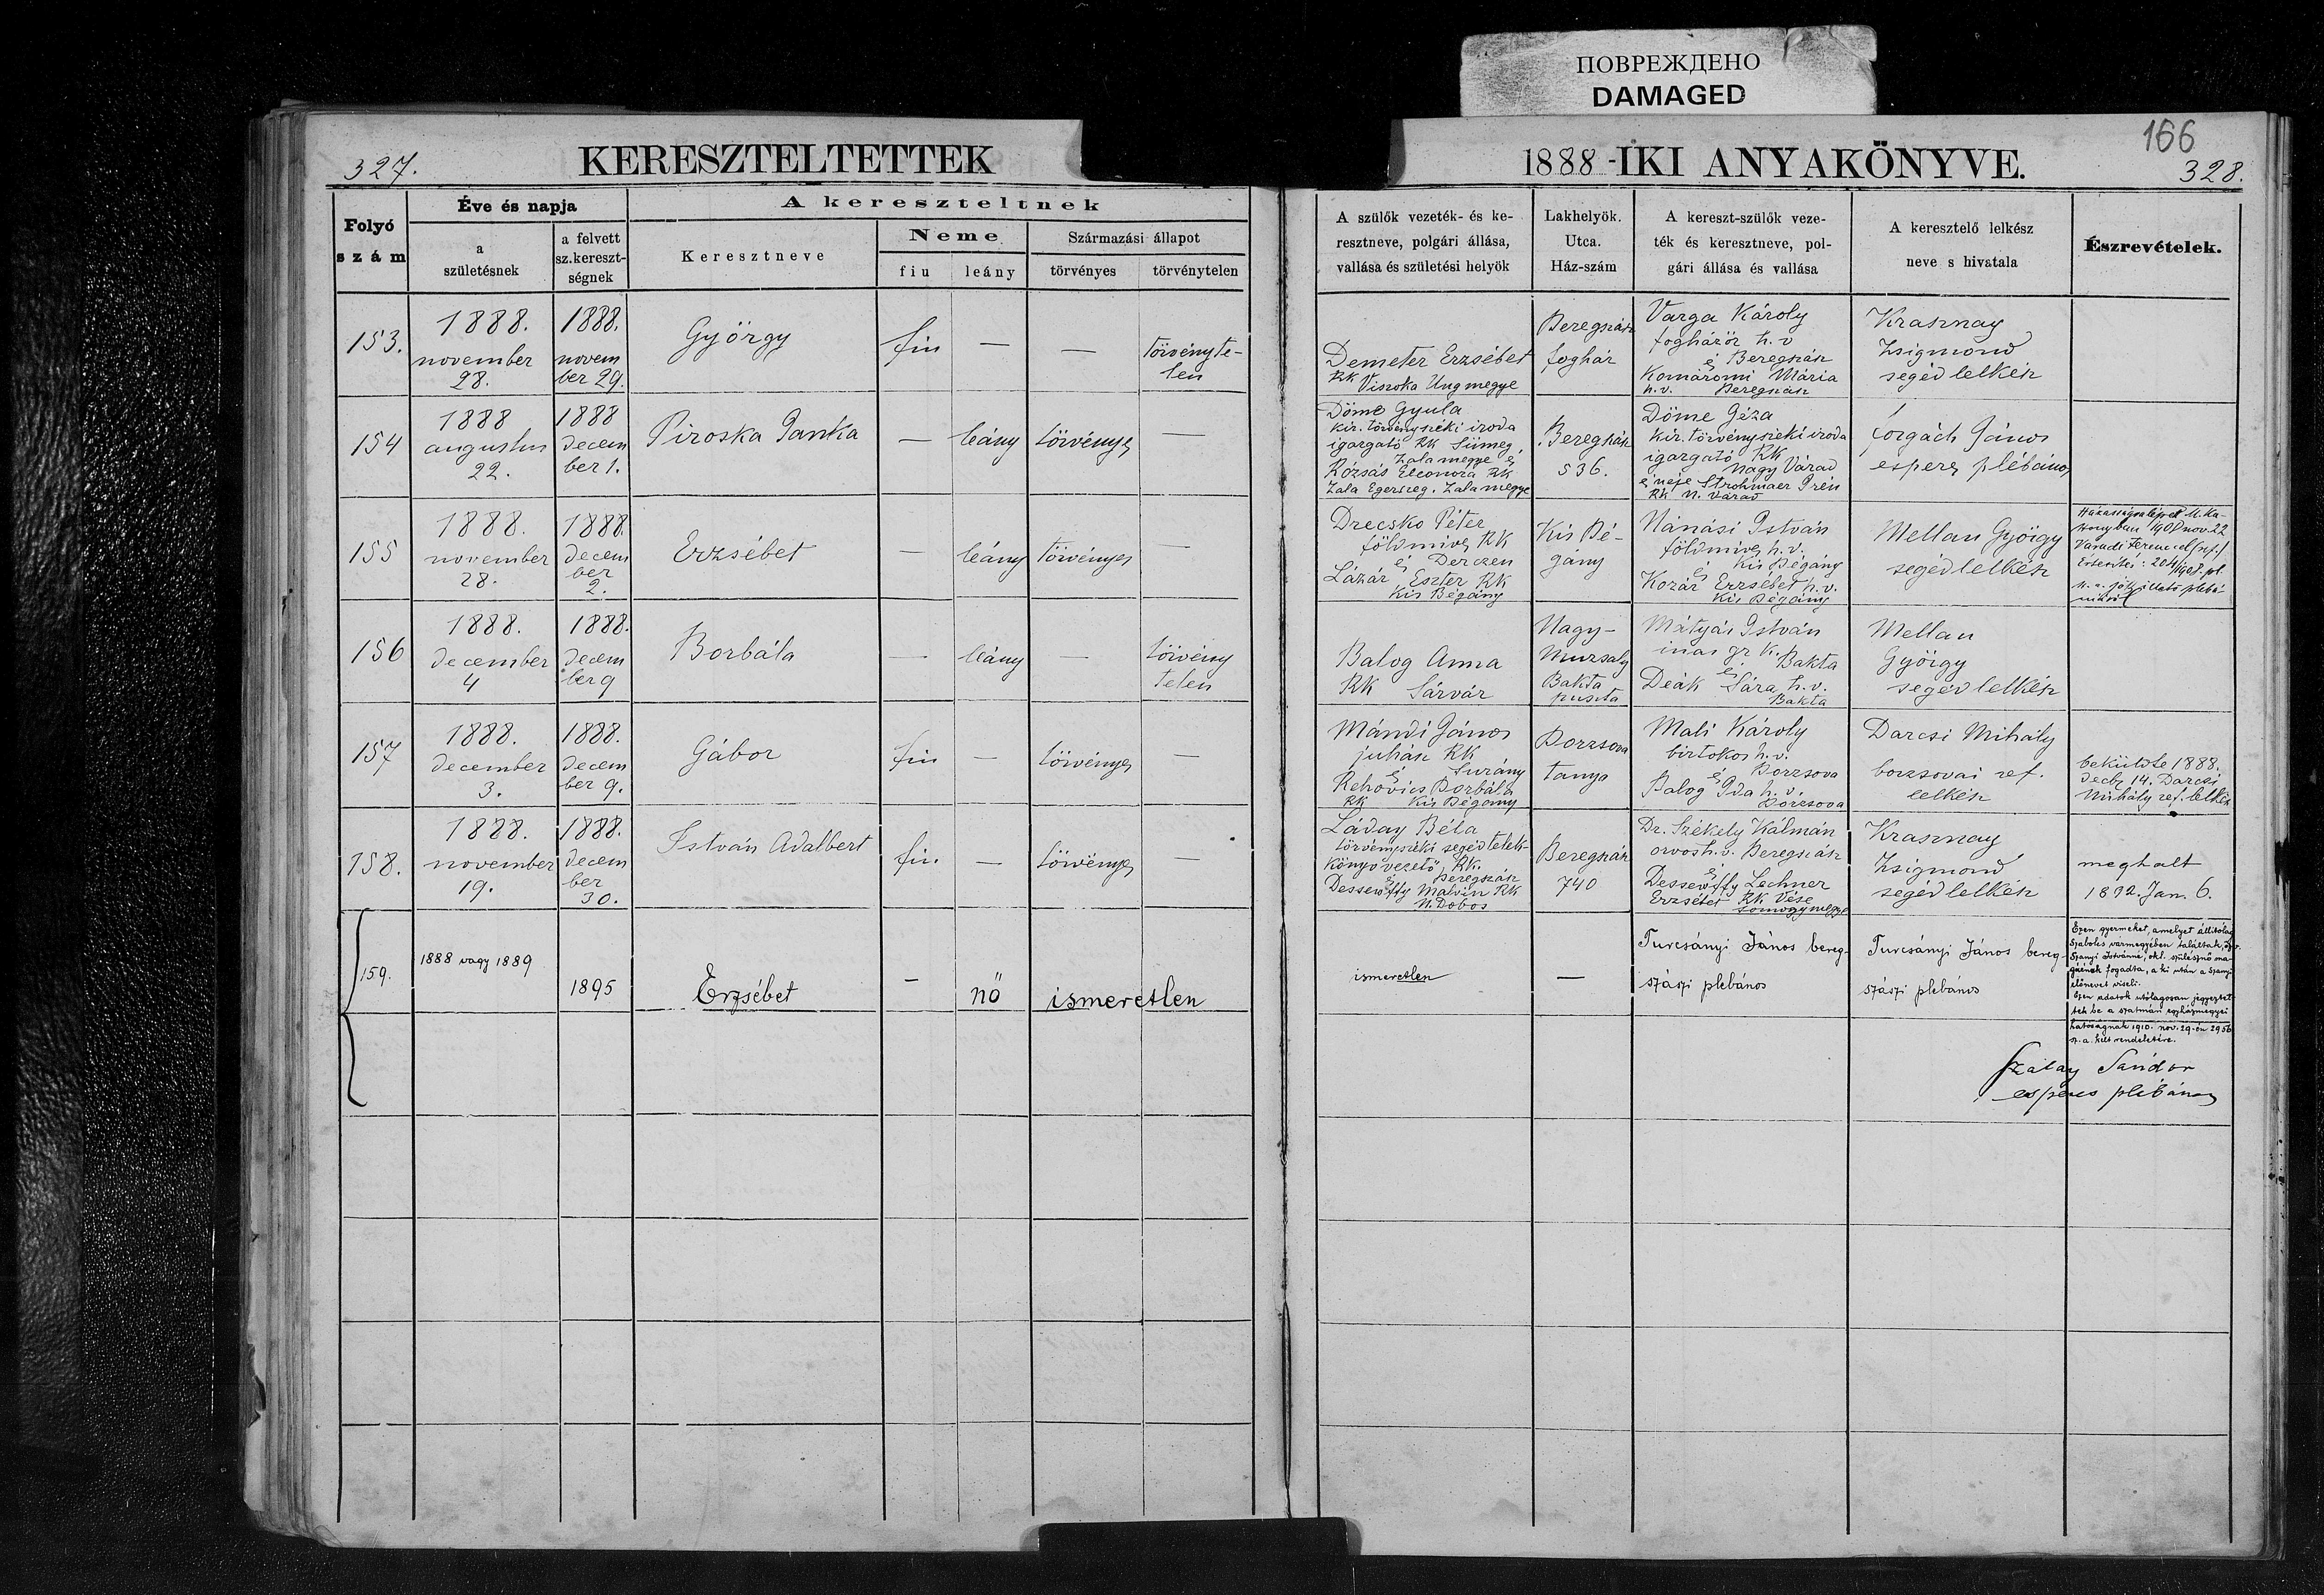 ПОВРЕЖДЕНО
DAMAGED
166
327.
KERESZTELTETTEK
1888-IKI ANYAKÖNYVE.
328.
Folyó szám
Éve és napja
a születésnek
a felvett sz.kereszt-ségnek
A kereszteltnek
Keresztneve
Neme
fiu
leány
Származási állapot
törvényes
törvénytelen
A szülők vezeték- és ke-
resztneve, polgári állása,
vallása és születési helyök
Lakhelyök.
Utca.
Ház-szám
A kereszt-szülők veze-
ték és keresztneve, pol-
gári állása és vallása
A keresztelő lelkész
neve s hivatala
Észrevételek.
153.
1888.
november
28.
1888.
novem
ber 29.
György
fiu
—
—
törvényte-
len
Demeter Erzsébet
RK Viszoka Ungmegye
Beregszász
fogház
Varga Károly
fogházőr h.v
é Beregszász
Komáromi Mária
h.v. Beregszász
Krasznay
Zsigmond
segéd lelkész
154
1888
augustus
22.
1888
decem
ber 1.
Piroska Janka
—
leány
törvényes
—
Döme Gyula
kir. törvényszéki iroda
igazgató RK Sümeg
Zala megye é
Rózsás Eleonora RK
Zala Egerszeg. Zala megye
Beregszász
536.
Döme Géza
kir. törvényszéki iroda
igazgató RK
Nagy Várad
é neje Strohmaer Irén
RK N. Várad
Forgách János
esperes plébános
155
1888.
november
28.
1888.
decem
ber
2.
Erzsébet
—
leány
törvényes
—
Drecsko Péter
földmives RK
é Derczen
Lázár Eszter RK
Kis Bégány
Kis Bé-
gány
Nánási István
földmives h.v.
é Kis Bégány
Kozár Erzsébet h.v.
Kis Bégány
Mellau György
segéd lelkész
Házasságra lépett M. Ka-
szonyban 1908 nov. 22
Váradi Ferenccel (ref.)
Értesítés: 204/1908. pl.
156
1888.
december
4
1888.
decem
ber 9
Borbála
—
leány
—
törvény
telen
Balog Anna
RK Sárvár
Nagy-
Muzsaly
Bakta
puszta
Mátyás István
inas gr k. Bakta
é
Deák Sára h.v.
Bakta
Mellau
György
segéd lelkész
157
1888.
december
3.
1888.
decem
ber 9.
Gábor
fiu
—
törvényes
—
Mándi János
juhász RK
é Surány
Rehovics Borbála
RK Kis Bégány
Borzsova
tanya
Mali Károly
birtokos h.v.
é Borzsova
Balog Ida h.v.
Borzsova
Darcsi Mihály
borzsovai ref.
lelkész
beküldte 1888.
decbr 14. Darcsi
Mihály ref. lelkész
158.
1888.
november
19.
1888.
decem
ber
30.
István Adalbert
fiu
—
törvényes
—
Láday Béla
törvényszéki segéd telek-
könyvvezető RK.
é Beregszász
Dessewffy Malvin RK
N. Dobos
Beregszász
740
Dr. Székely Kálmán
orvos h.v. Beregszász
é
Dessewffy Lechner
Erzsébet RK Vése
Somogymegye
Krasznay
Zsigmond
segéd lelkész
meghalt
1892. Jan. 6.
159.
1888 vagy 1889
1895
Erzsébet
-
nő
ismeretlen
ismeretlen
—
Turcsányi János bereg-
szászi plebános
Turcsányi János bereg-
szászi plebános
Ezen gyermeket, amelyet állitólag
Szabolcs vármegyében találtak, özv.
Szanyi Istvánné, okl. szülésznő ma-
gáénak fogadta, a ki után a Szanyi
előnevet viseli.
Ezen adatok utólagosan jegyeztet-
tek be a szatmári egyházmegyei
hatóságnak 1910. nov. 29-én 2956
sz. a. kelt rendeletére.
Szalay Sándor
esperes plébános